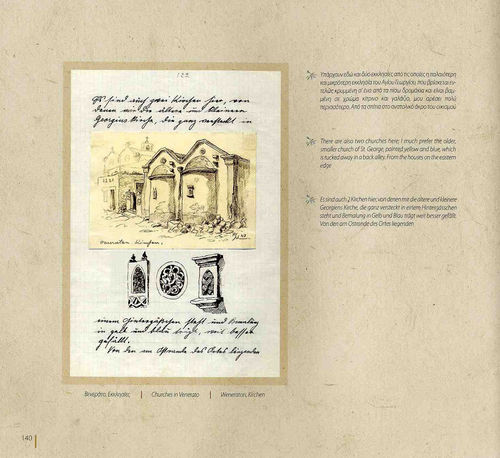 122
Es sind auch zwei Kirchen hier, von
denen mir die ältere und kleinere
Georgius Kirche, die ganz versteckt in
Veneraton Kirchen.
einem Hintergäßchen steht und Bemalung
in gelb und blau trägt, weit besser
gefällt.
Von den am Ostrande des Ortes liegenden
Βενεράτο, Εκκλησίες | Churches in Venerato | Weneraton, Kirchen
Υπάρχουν εδώ και δύο εκκλησίες, από τις οποίες η παλαιότερη
και μικρότερη εκκλησία του Αγίου Γεωργίου, που βρίσκεται εν-
τελώς κρυμμένη σ' ένα από τα πίσω δρομάκια και είναι βαμ-
μένη σε χρώμα κίτρινο και γαλάζιο, μου αρέσει πολύ
περισσότερο. Από τα σπίτια στο ανατολικό άκρο του οικισμού
There are also two churches here; I much prefer the older,
smaller church of St. George, painted yellow and blue, which
is tucked away in a back alley. From the houses on the eastern
edge
Es sind auch 2 Kirchen hier, von denen mir die ältere und kleinere
Georgiens Kirche, die ganz versteckt in einem Hintergässchen
steht und Bemalung in Gelb und Blau trägt weit besser gefällt.
Von den am Ostrande des Ortes liegenden
140